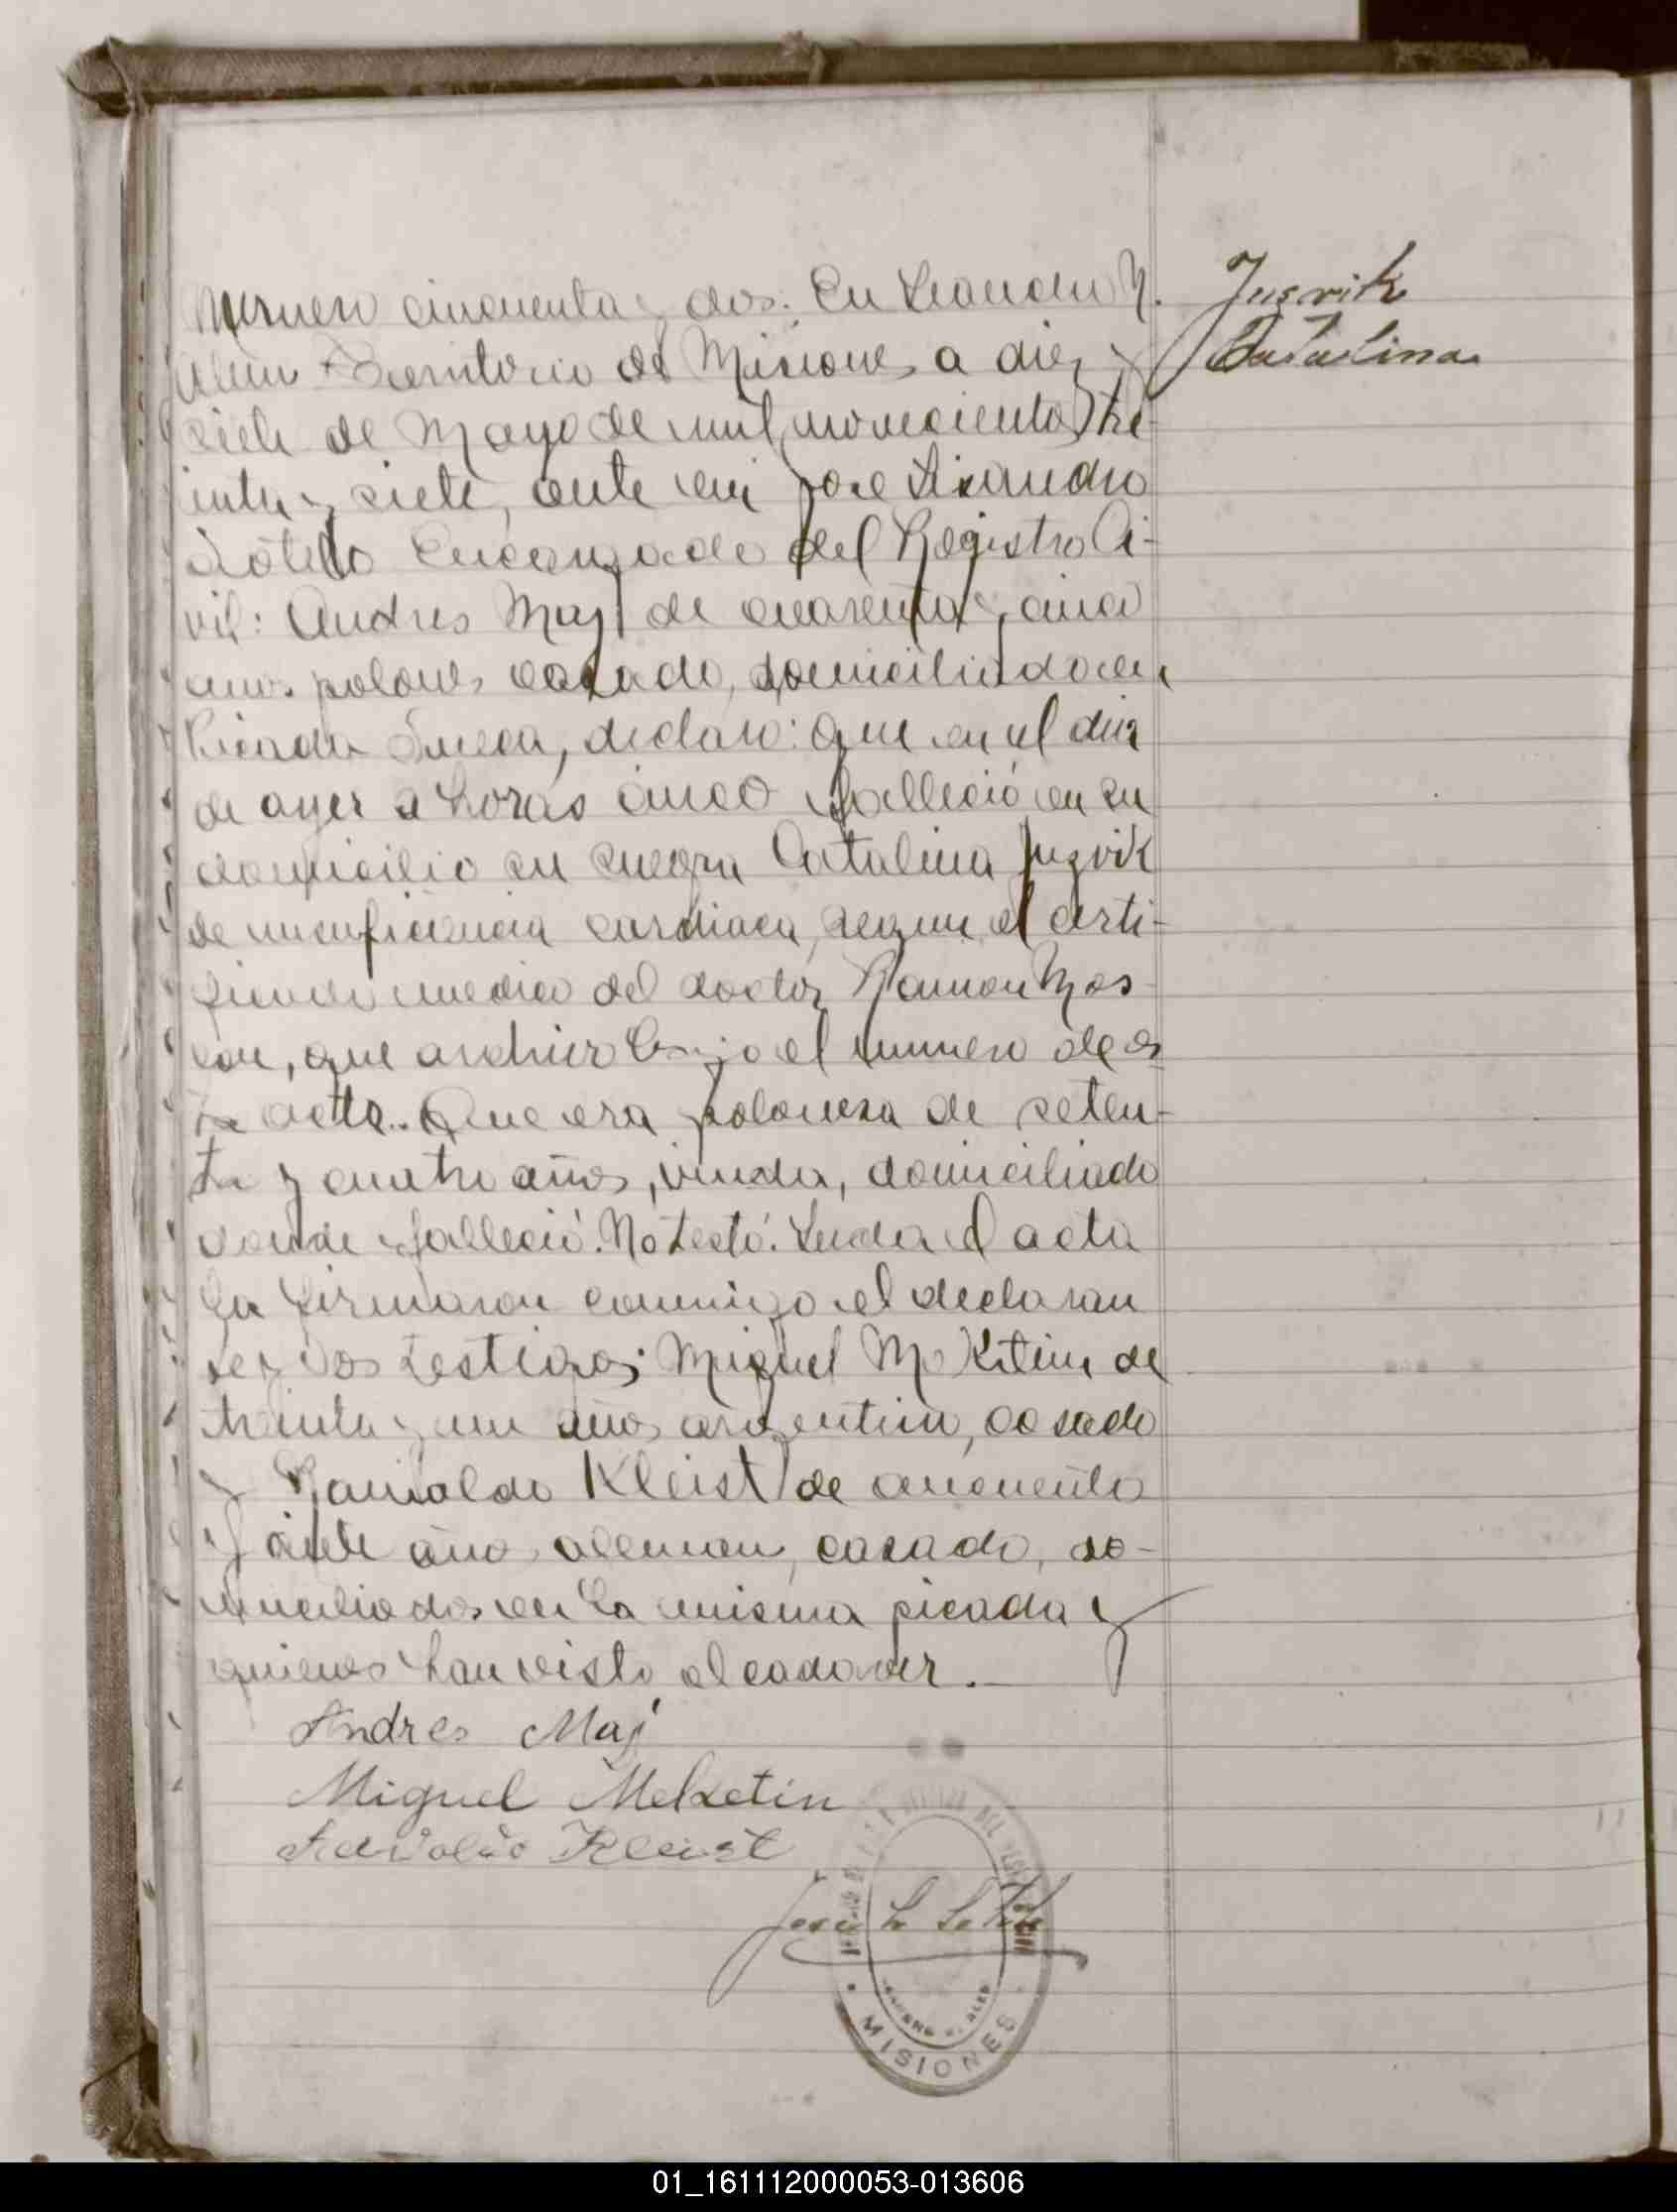 Numero cincuenta y dos. En Leandro N.
Alem Territorio de Misiones a diez y
siete de Mayo de mil novecientos tre-
inta y siete, ante mi Jose Lisandro
Sotelo Encargado del Registro Ci-
vil: Andres Maj de cuarenta y cinco
años polones casado, domiciliado en
Picada Sueca, declaro: Que en el dia
de ayer a horas cinco falleció en su
domicilio su suegra Catalina Jusvik
de insuficiencia cardiaca, segun el certi-
ficado medico del doctor Ramon Mas
que archivo bajo el numero de es
ta acta. Que era polonesa de seten-
ta y cuatro años, viuda, domiciliada
donde falleció. No testó. Leida el acta
la firmaron conmigo el declaran
te y los testigos: Miguel de
treinta y un años argentino, casado
y Kleist de cincuenta
y siete años aleman, casado, do-
miciliados en la misma picada y
quienes han visto el cadaver.
Andres Maj
Miguel Melzetin
Kleist
MISIONES
Jusvik
Catalina
01_161112000053-013606